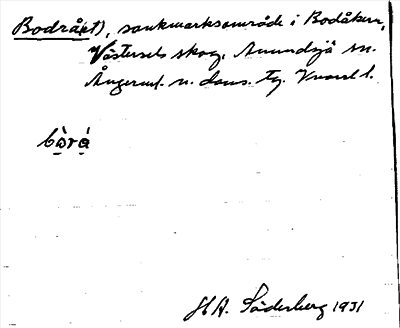 Bodrå(et), sankmarksområde i Bodåkern,
Västersels skog, Anundsjö sn.
Ångerml. n. doms. tg.
bòrå
H A. Söderberg 1931